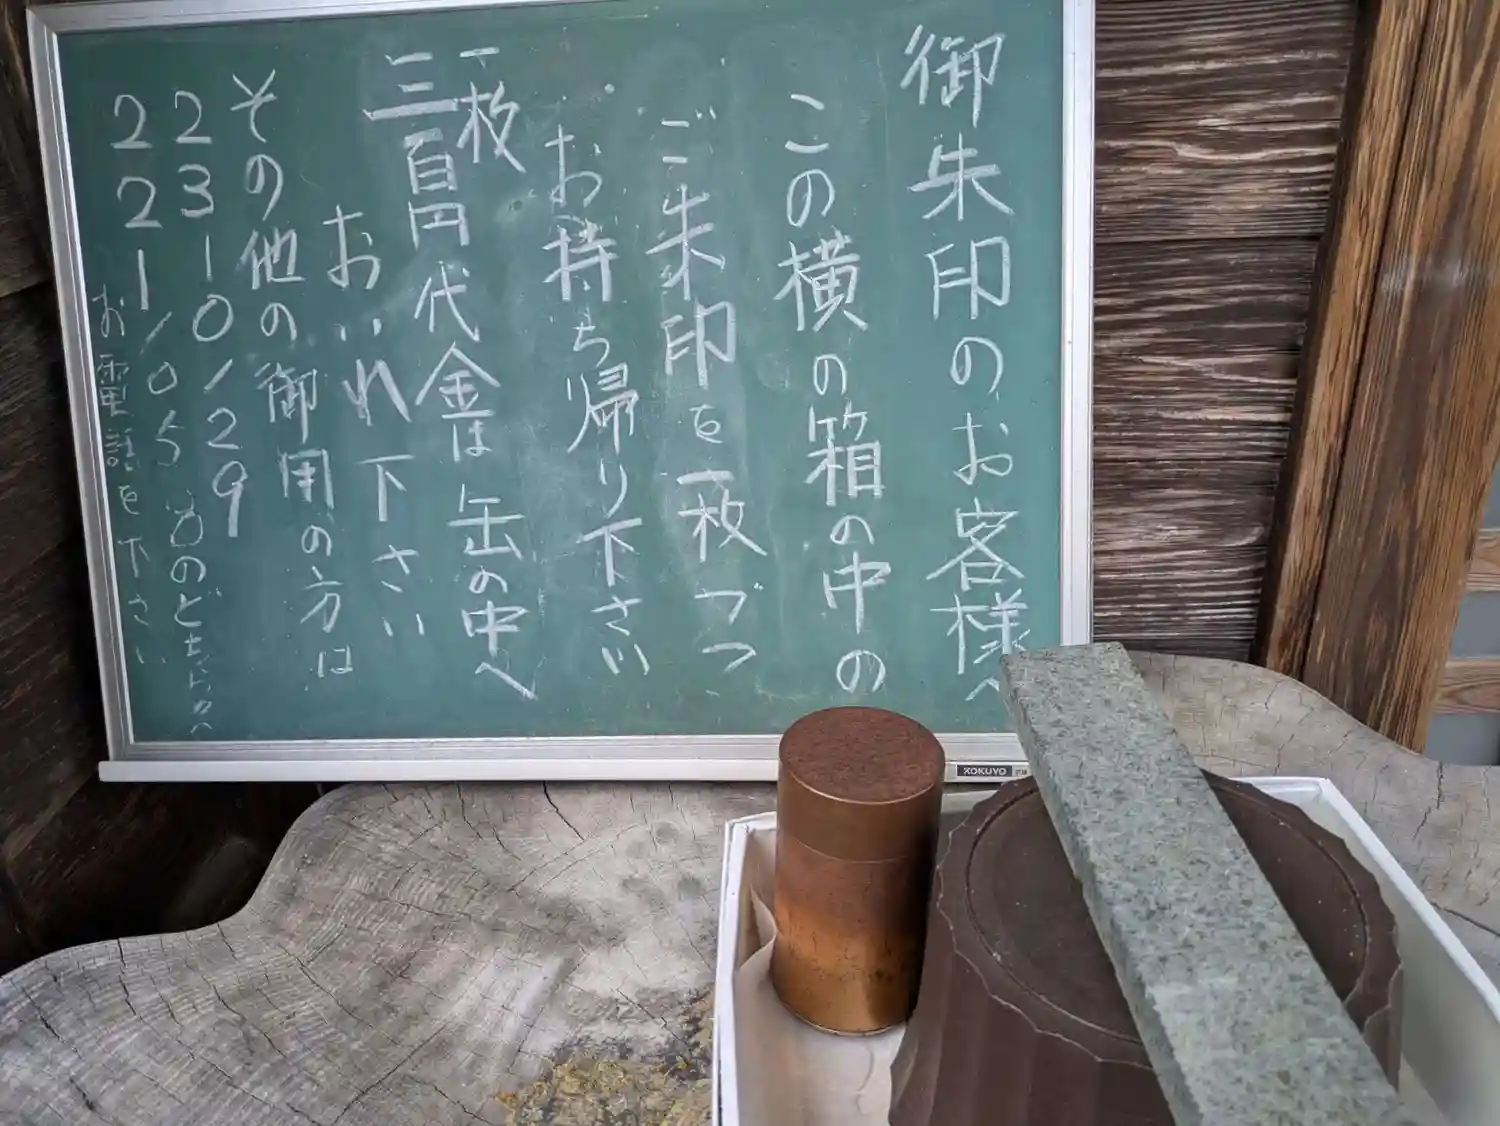 御朱印のお客様へ
この横の箱の中の
ご朱印を一枚づつ
お持ち帰り下さい
一枚
三百円 代金は 缶の中へ
おいれ下さい
その他の御用の方は
23-0129
221-1055 のどちらかへ
お電話を下さい
KOKUYO